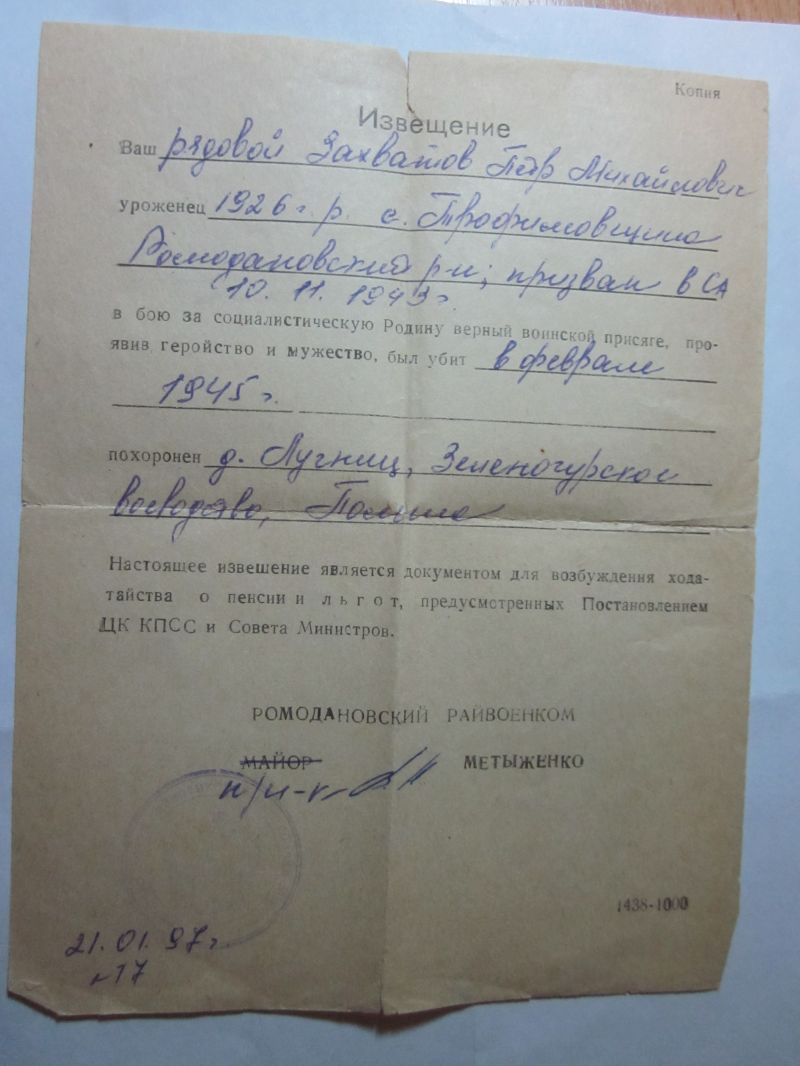 Копия
Извещение
Ваш рядовой Захватов Пётр Михайлович
уроженец 1926 г. р. с. Трофимовщина
Ромодановский р-н; призван в СА
10. 11. 1943 г.
в бою за социалистическую Родину верный воинской присяге, про-
явив геройство и мужество, был убит в феврале
1945 г.
похоронен д. Лугниц, Зеленогурское
воеводство, Польша
Настоящее извешение является документом для возбуждения хода-
тайства о пенсии и льгот, предусмотренных Постановлением
ЦК КПСС и Совета Министров.
РОМОДАНОВСКИЙ РАЙВОЕНКОМ
МАЙОР МЕТЫЖЕНКО
п/п-к
1438-1000
21.01.97г.